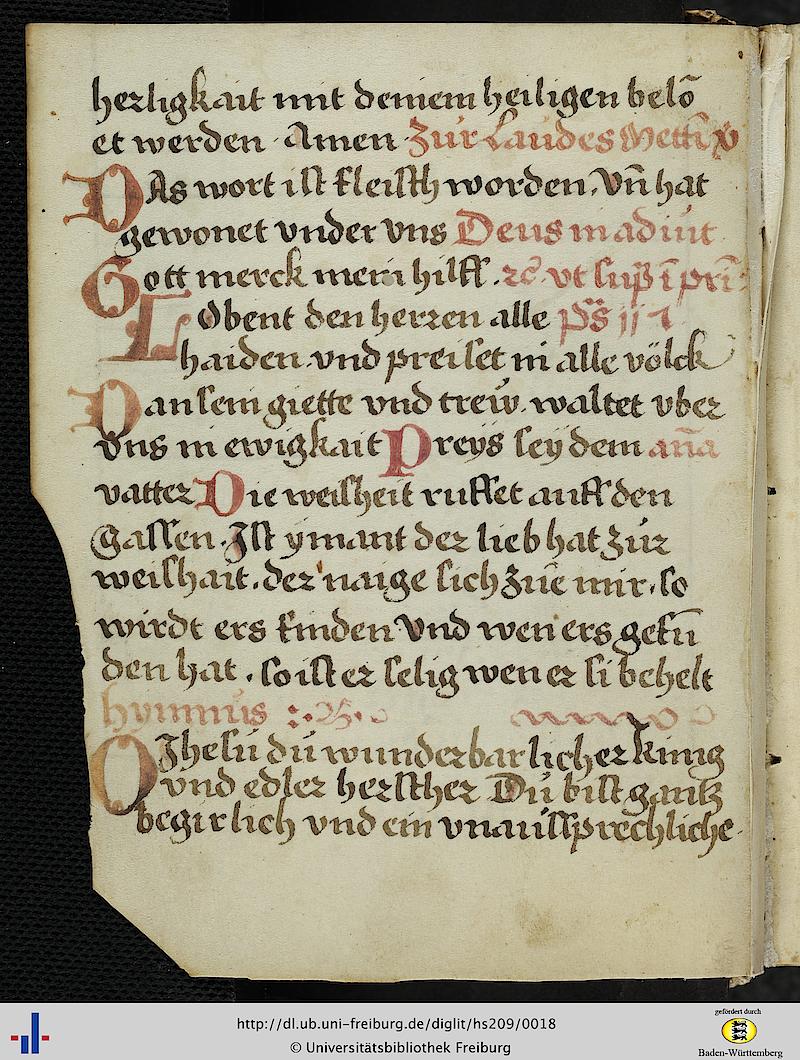 herligkait mit deinem heiligen belō
et werden · Amen · Zur Laudes Mettī
DAs wort ist fleisch worden, vn̄ hat
gewonet vnder vns Deus in adiut
Gott merck mein hilff . ꝛc̄ · vt sup̄ ī pri
LObent den herren alle ps̄
haiden vnd preiset in alle völck
Dan sein giette vnd trew. waltet vber
vns in ewigkait Preys sey dem an̄a
vatter Die weisheit ruffet auff den
Gassen · Ist ymant der lieb hat zur
weishait . der naige sich zue mir . so
wirdt ers finden Vnd wen ers gefū
den hat . so ist er selig wen er si behelt
hymnus
O Jhesu du wunderbarlicher king
vnd edler herscher Du bist gantz
begirlich vnd ein vnaussprechliche
http://dl.ub.uni-freiburg.de/diglit/hs209/0018
© Universitätsbibliothek Freiburg
gefördert durch
Baden-Württemberg